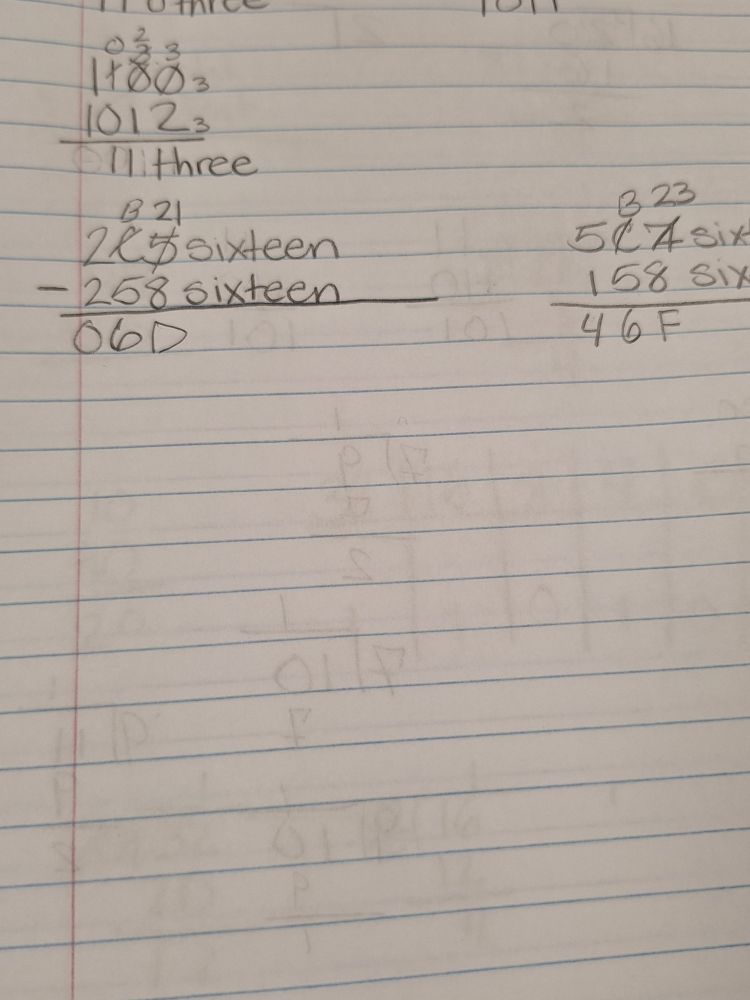 three 1011
0 2 3
2
1100 3
1012 3
011 three
B 21
2C5 sixteen
- 258 sixteen
06D
B 23
5C7 six
158 six
46F